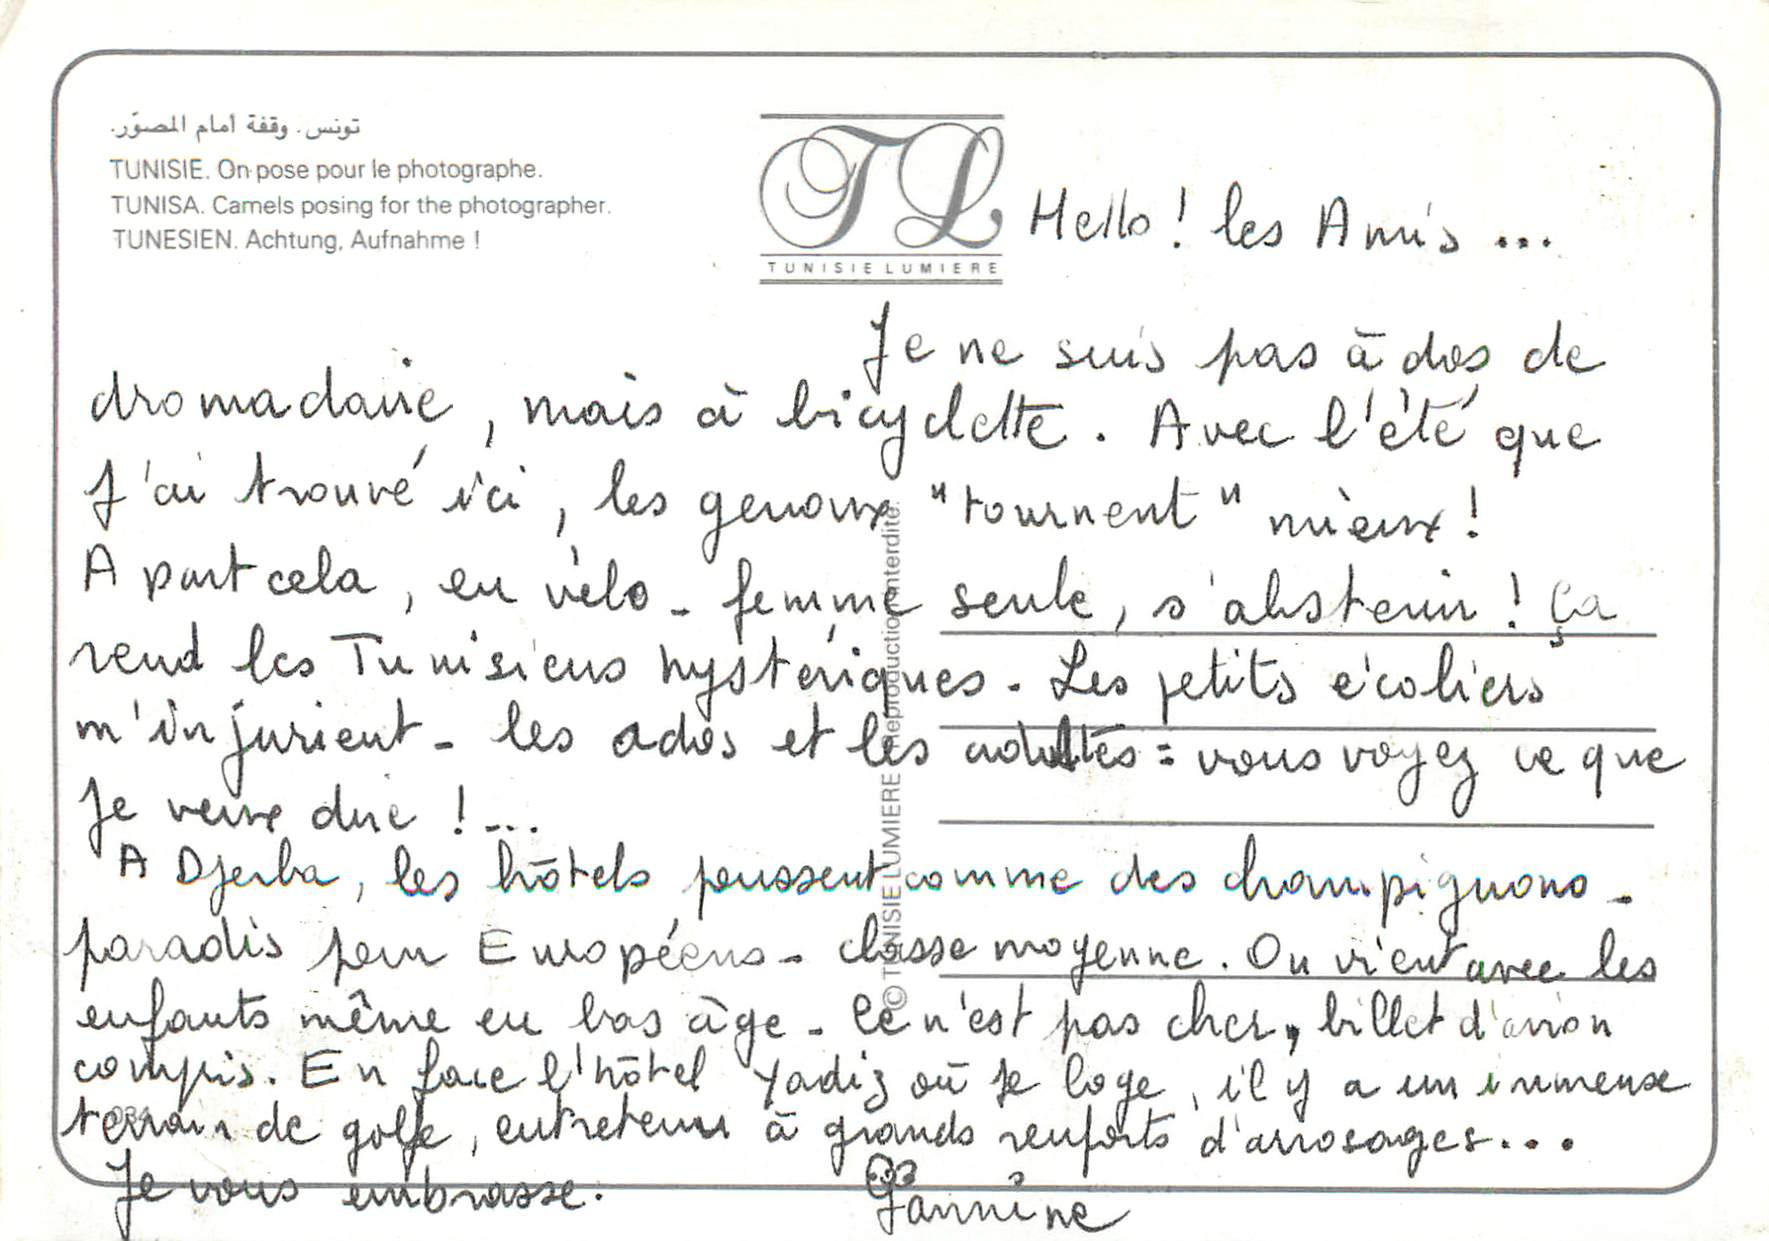 تونس. وقفة أمام المصوّر.
TUNISIE. On pose pour le photographe.
TUNISA. Camels posing for the photographer.
TUNESIEN. Achtung, Aufnahme !
TL
TUNISIE LUMIERE
Hello ! les Amis ...
Je ne suis pas à dos de
dromadaire, mais à bicyclette. Avec l'été que
j'ai trouvé ici, les genoux "tournent" mieux !
A part cela, en vélo - femme seule, s'abstenir ! Ça
rend les Tunisiens hystériques. Les petits écoliers
m'injurient - les ados et les adultes = vous voyez ce que
je veux dire !...
A Djerba, les hôtels poussent comme des champignons -
paradis pour Européens - classe moyenne. On vient avec les
enfants même en bas âge - Ce n'est pas cher, billet d'avion
compris. En face l'hôtel Yadis où je loge, il y a un immense
terrain de golfe, entretenu à grands renforts d'arrosages...
Je vous embrasse.
Jannine
© TUNISIE LUMIERE Reproduction interdite.